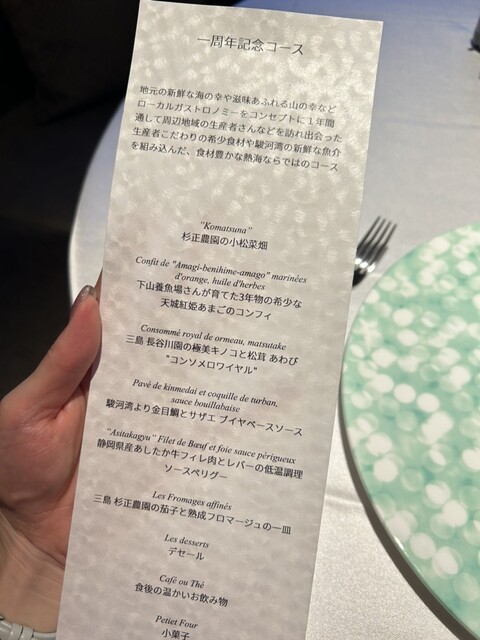 一周年記念コース
地元の新鮮な海の幸や滋味あふれる山の幸など
ローカルガストロノミーをコンセプトに1年間
通して周辺地域の生産者さんなどを訪れ出会った
生産者こだわりの希少食材や駿河湾の新鮮な魚介
を組み込んだ、食材豊かな熱海ならではのコース
"Komatsuna"
杉正農園の小松菜畑
Confit de "Amagi-benihime-amago" marinées
d'orange, huile d'herbes
下山養魚場さんが育てた3年物の希少な
天城紅姫あまごのコンフィ
Consommé royal de ormeau, matsutake
三島 長谷川園の極美キノコと松茸 あわび
"コンソメロワイヤル"
Pavé de kinmedai et coquille de turban,
sauce bouillabaisse
駿河湾より金目鯛とサザエ ブイヤベースソース
"Asitakagyu" Filet de Bœuf et foie sauce périgueux
静岡県産あしたか牛フィレ肉とレバーの低温調理
ソースペリグー
Les Fromages affinés
三島 杉正農園の茄子と熟成フロマージュの一皿
Les desserts
デセール
Café ou Thé
食後の温かいお飲み物
Petiet Four
小菓子